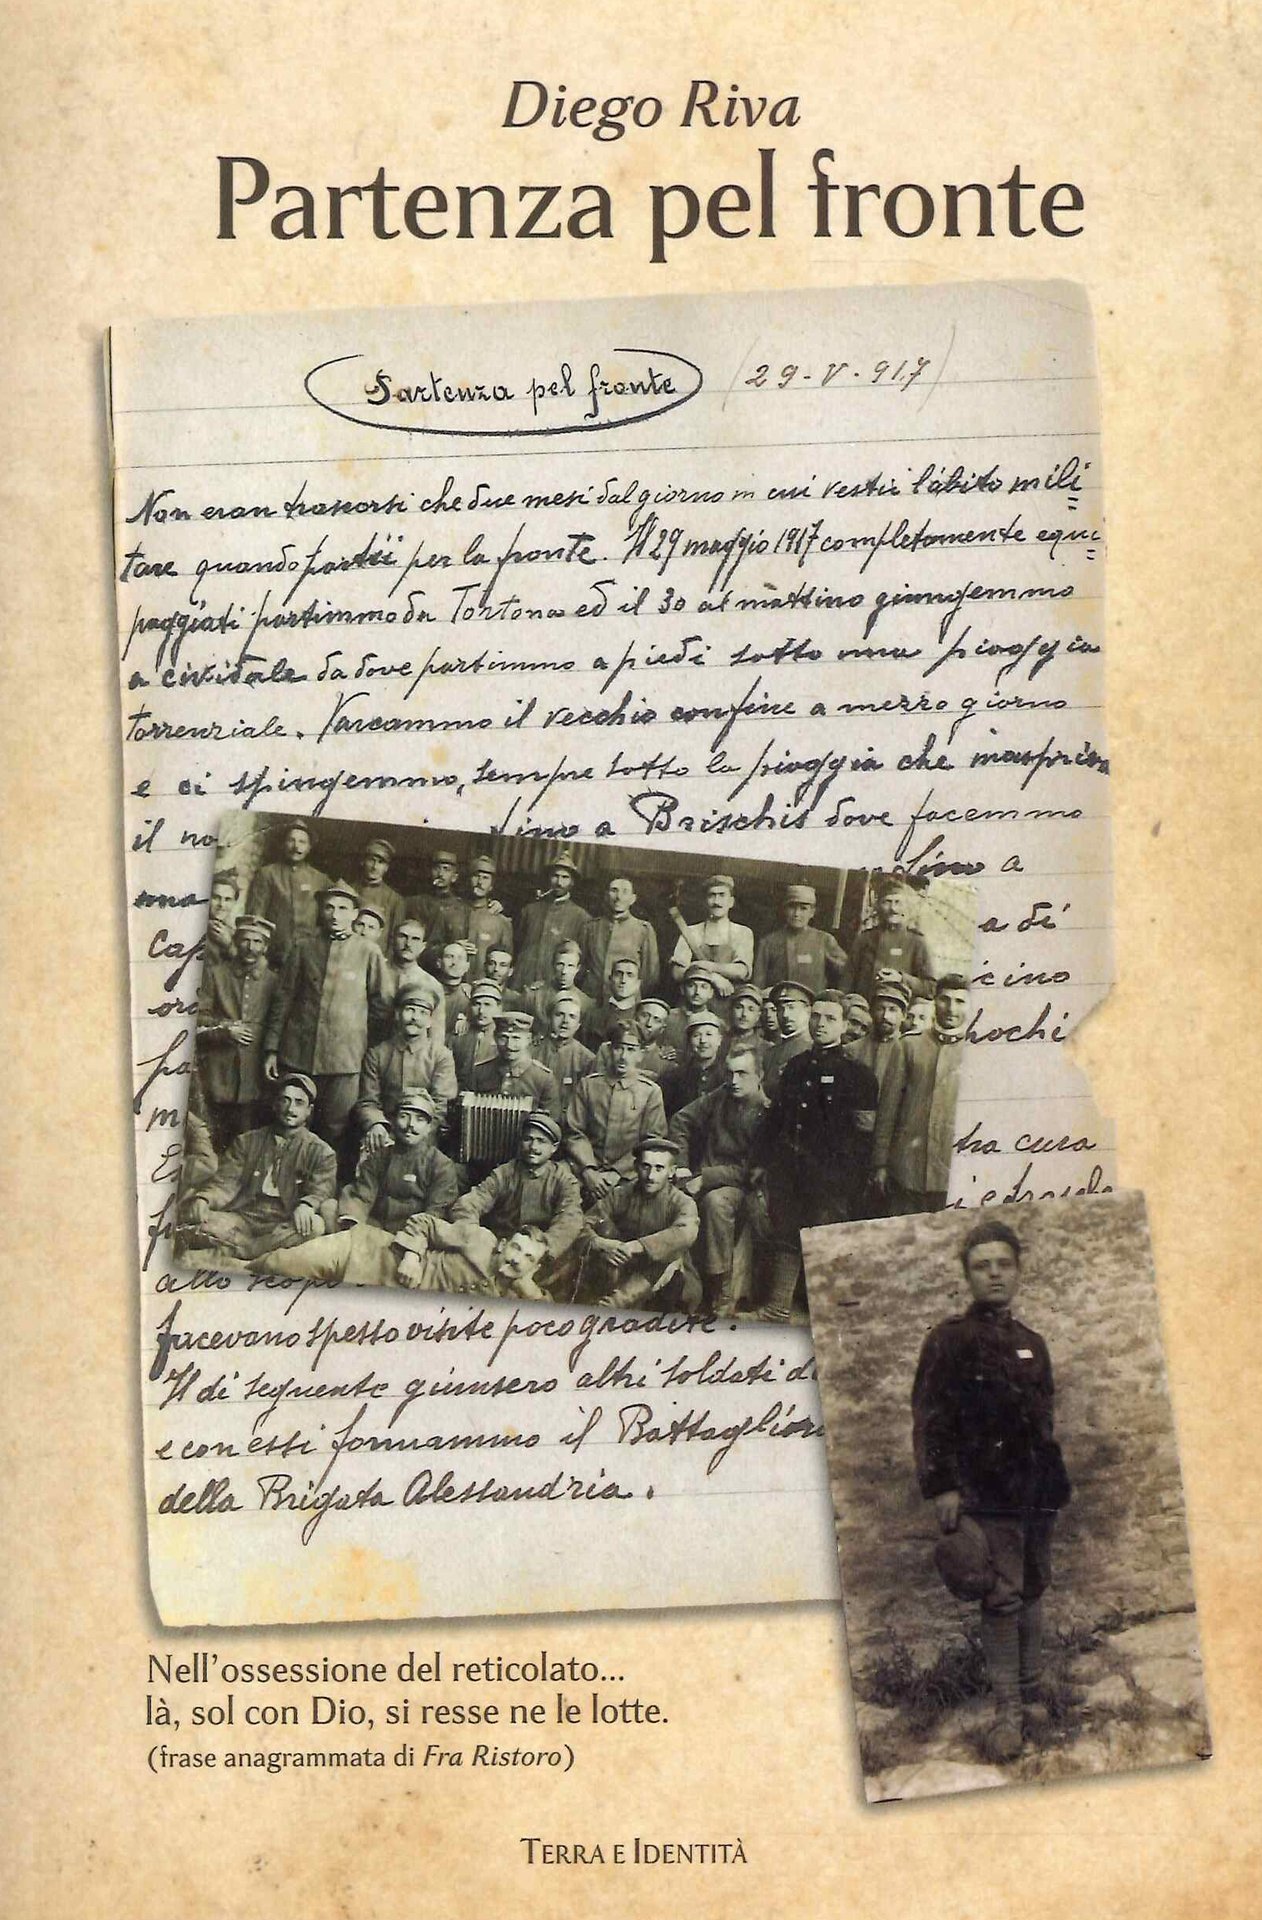 Diego Riva
Partenza pel fronte
Partenza pel fronte (29-V-917)
Non eran trascorsi che due mesi dal giorno in cui vestii l'abito mili
tare quando partii per la fronte. Il 29 maggio 1917 completamente equi
paggiati partimmo da Tortona ed il 30 al mattino giungemmo
a cividale da dove partimmo a piedi sotto una pioggia
torrenziale. Varcammo il vecchio confine a mezzo giorno
e ci spingemmo, sempre sotto la pioggia che inaspriva
il no fino a Brischis dove facemmo
una fino a
a di
icino
hochi
tra cura
facevano spesso visite poco gradite.
Il di seguente giunsero altri soldati d
e con essi formammo il Battaglion
della Brigata Alessandria.
Nell'ossessione del reticolato...
là, sol con Dio, si resse ne le lotte.
(frase anagrammata di Fra Ristoro)
TERRA E IDENTITÀ